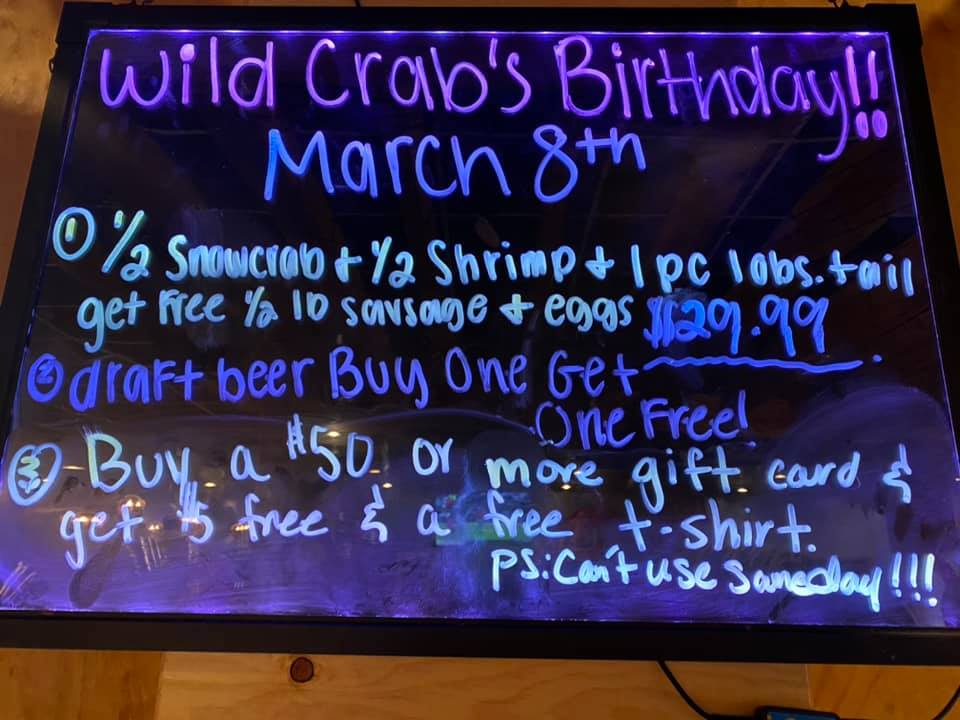 Wild Crab's Birthday!!
March 8th
① ½ Snowcrab + ½ Shrimp + 1 pc lobs. tail
get free ½ lb sausage + eggs $29.99
② draft beer Buy One Get
One Free!
③ Buy a $50 or more gift card &
get $5 free & a free t-shirt.
PS: Can't use sameday!!!